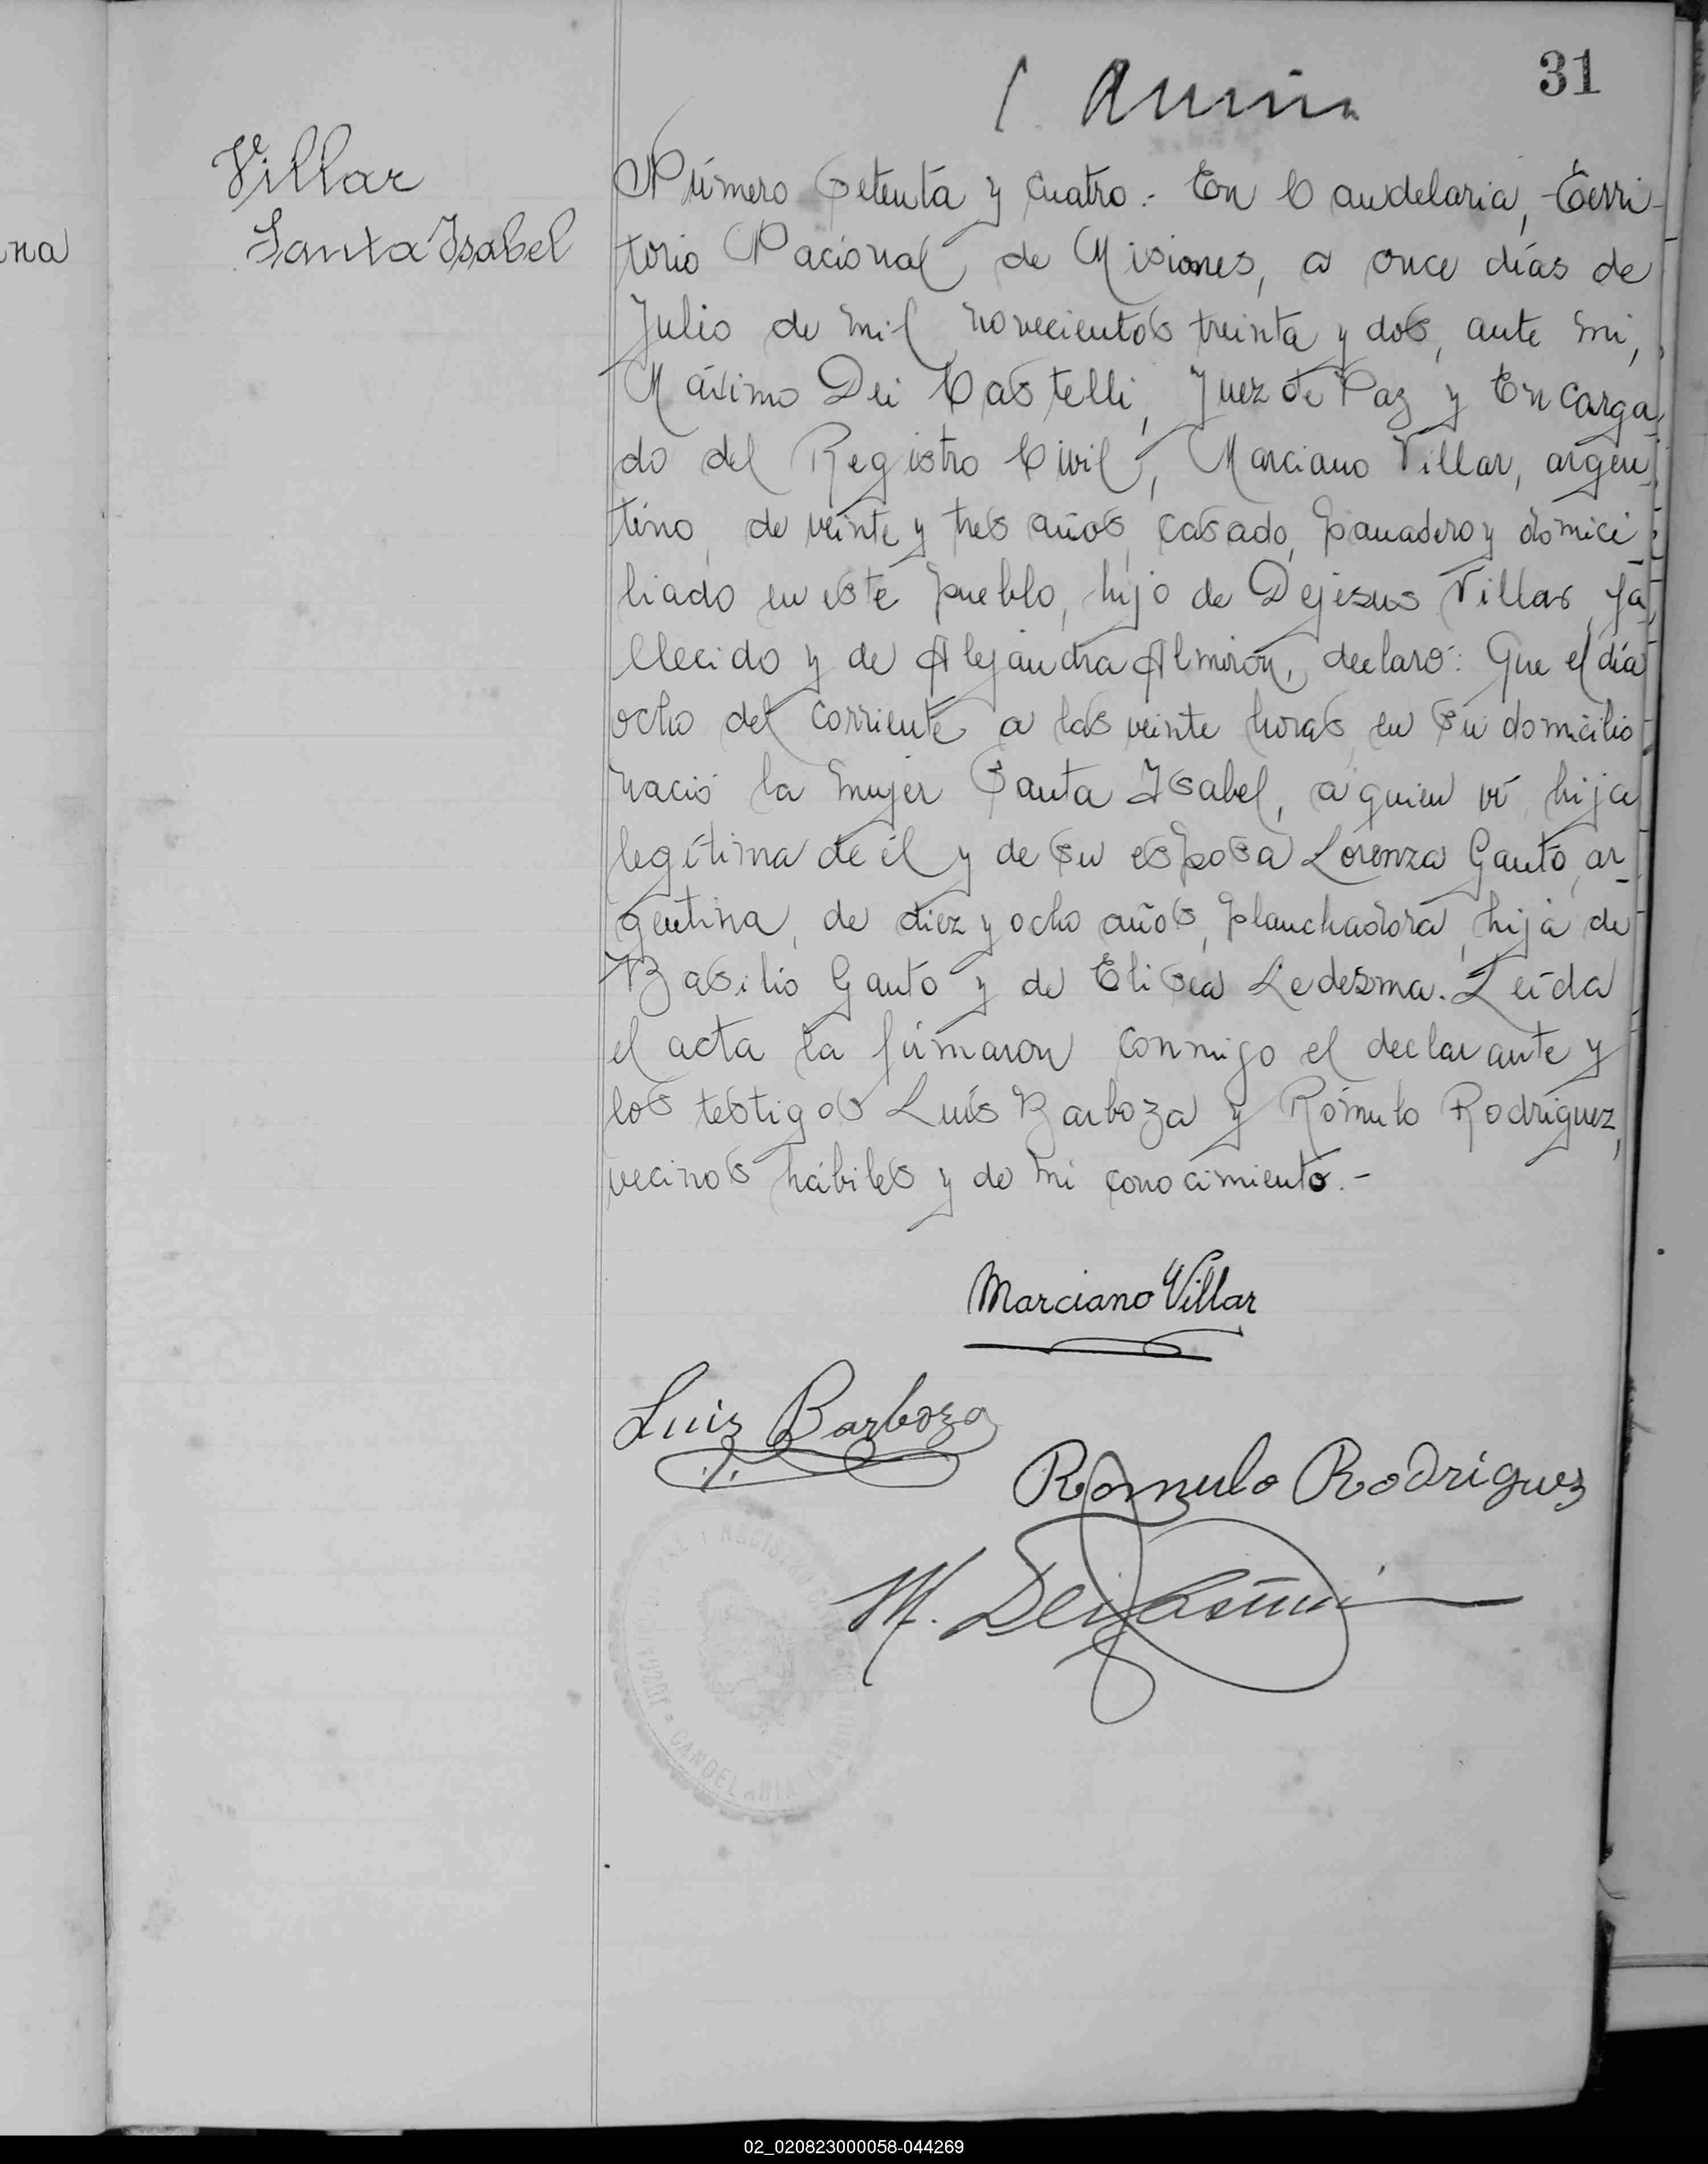 31
Villar
Santa Isabel
na
Número Setenta y cuatro.- En Candelaria, Terri-
torio Nacional de Misiones, a once días de
Julio de mil novecientos treinta y dos, ante mi,
Máximo Dei Castelli, Juez de Paz y Encarga-
do del Registro Civil, Marciano Villar, argen-
tino, de veinte y tres años, casado, panadero y domici-
liado en este pueblo, hijo de Dejesus Villar, fa-
llecido y de Alejandra Almirón, declaró: Que el día
ocho del corriente a las veinte horas, en su domicilio
nació la mujer Santa Isabel, a quien ví, hija
legítima de él y de su esposa Lorenza Gauto, ar-
gentina, de diez y ocho años, planchadora, hija de
Basilio Gauto y de Elisea Ledesma. Leída
el acta la firmaron conmigo el declarante y
los testigos Luís Barboza y Rómulo Rodríguez,
vecinos hábiles y de mi conocimiento.-
Marciano Villar
Luis Barboza
Romulo Rodríguez
M. Dei Castelli
CANDELARIA
02_020823000058-044269